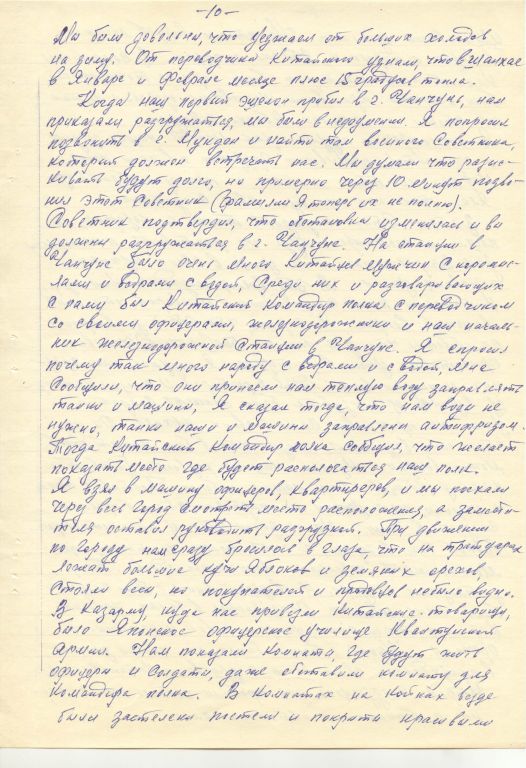 -10-
Мы были довольны, что уезжаем от больших холодов
на запад. От переводчика Китайского узнали, что в Шанхае
в Январе и Феврале месяце плюс 15 градусов тепла.
Когда наш первый эшелон прибыл в г. Чанчунь, нам
приказали разгружаться, мы были в недоумении. Я попросил
позвонить в г. Мукден и найти там военного Советника,
который должен встречать нас. Мы думали что разыс-
кивать будут долго, но примерно через 10 минут позво-
нил этот Советник (фамилии Я теперь их не помню).
Советник подтвердил, что обстановка изменилась и вы
должны разгружаться в г. Чанчуне. На станции в
Чанчуне было очень много Китайцев мужчин с коромыс-
лами и вёдрами с водой, Среди них и разговаривающих
с нами был Китайский командир полка с переводчиком
со своими офицерами, железнодорожники и наш началь-
ник железнодорожной станции в Чанчуне. Я спросил
почему так много народу с вёдрами и с водой, Мне
Сообщили, что они принесли нам теплую воду заправлять
танки и машины, Я сказал тогда, что нам воды не
нужно, танки наши и машины заправлены антифризом.
Тогда Китайский Командир полка сообщил, что желает
показать место где будет располагаться наш полк.
Я взял в машину офицеров, квартирьеров, и мы поехали
через весь город смотреть место расположения, а замести-
теля оставил руководить разгрузкой. При движении
по городу нам сразу бросилось в глаза, что на тротуарах
лежат большие кучи Яблоков и земляных орехов,
стояли весы, но покупателей и продавцов не было видно.
В Казарму, куда нас привезли Китайские товарищи,
было Японское офицерское училище Квантунской
Армии. Нам показали комнаты, где будут жить
офицеры и солдаты, даже обставили комнату для
командира полка. В комнатах на койках везде
были застелены постели и покрыты красивыми